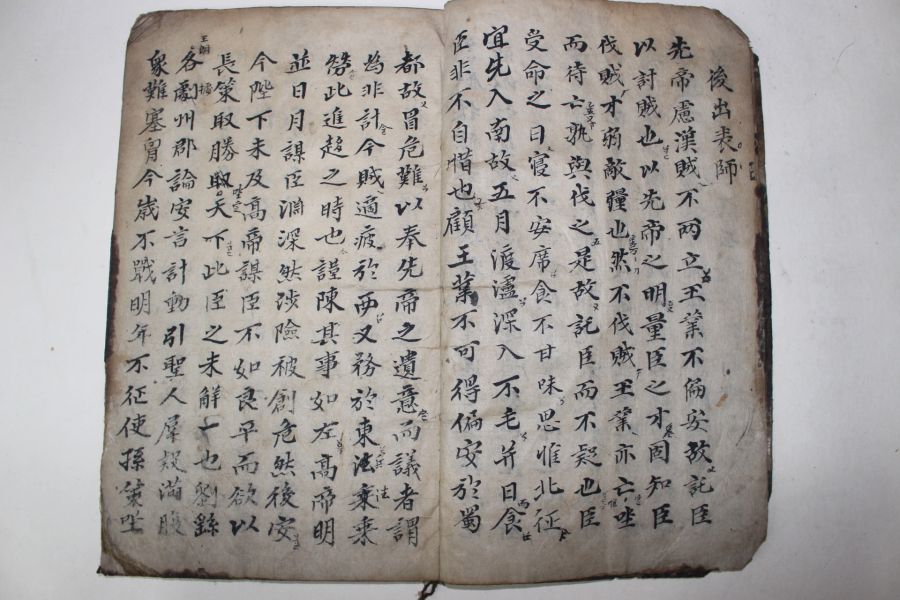 後出表師
先帝慮漢賊不兩立王業不偏安故託臣
以討賊也以先帝之明量臣之才固知臣
伐賊才弱敵彊也然不伐賊王業亦亡坐
而待亡孰與伐之是故託臣而不疑也臣
受命之日寢不安席食不甘味思惟北征
宜先入南故五月渡瀘深入不毛并日而食
臣非不自惜也顧王業不可得偏安於蜀
都故冒危難以奉先帝之遺意而議者謂
為非計今賊適疲於西又務於東法乘
勞此進趨之時也謹陳其事如左高帝明
並日月謀臣淵深然涉險被創危然後安
今陛下未及高帝謀臣不如良平而欲以
長策取勝坐定天下此臣之未解一也劉繇
王朗
各據州郡論安言計動引聖人群疑滿腹
衆難塞胷今歲不戰明年不征使孫策坐